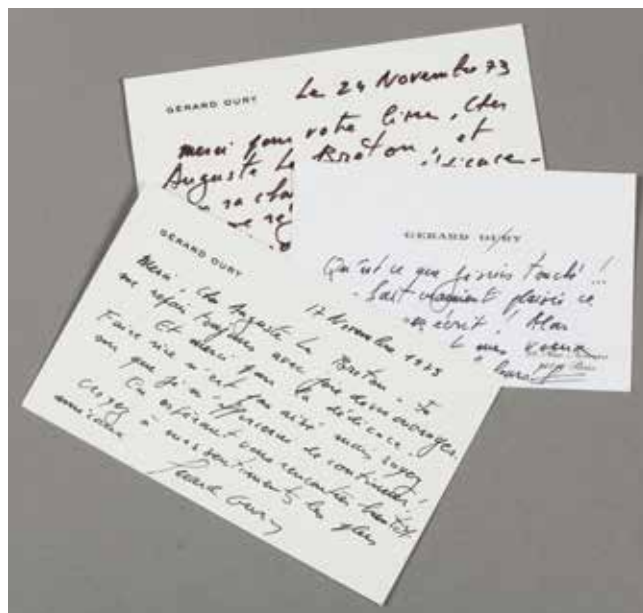 GÉRARD OURY
Le 24 Novembre 73
merci pour votre livre, cher
Auguste Le Breton, et
GÉRARD OURY
Qu'est ce que je suis touché !...
fait vraiment plaisir ce
écrit !
mes vœux
GÉRARD OURY
17 Novembre 1973
Merci, cher Auguste Le Breton. Je
me reçois toujours avec joie deux ouvrages.
Et merci pour la dédicace.
Faire rire n'est pas aisé mais soyez
sur que j'm'efforcerai de continuer !
En espérant vous rencontrer bientôt
croyez à mes sentiments les plus
amicaux
Gérard Oury